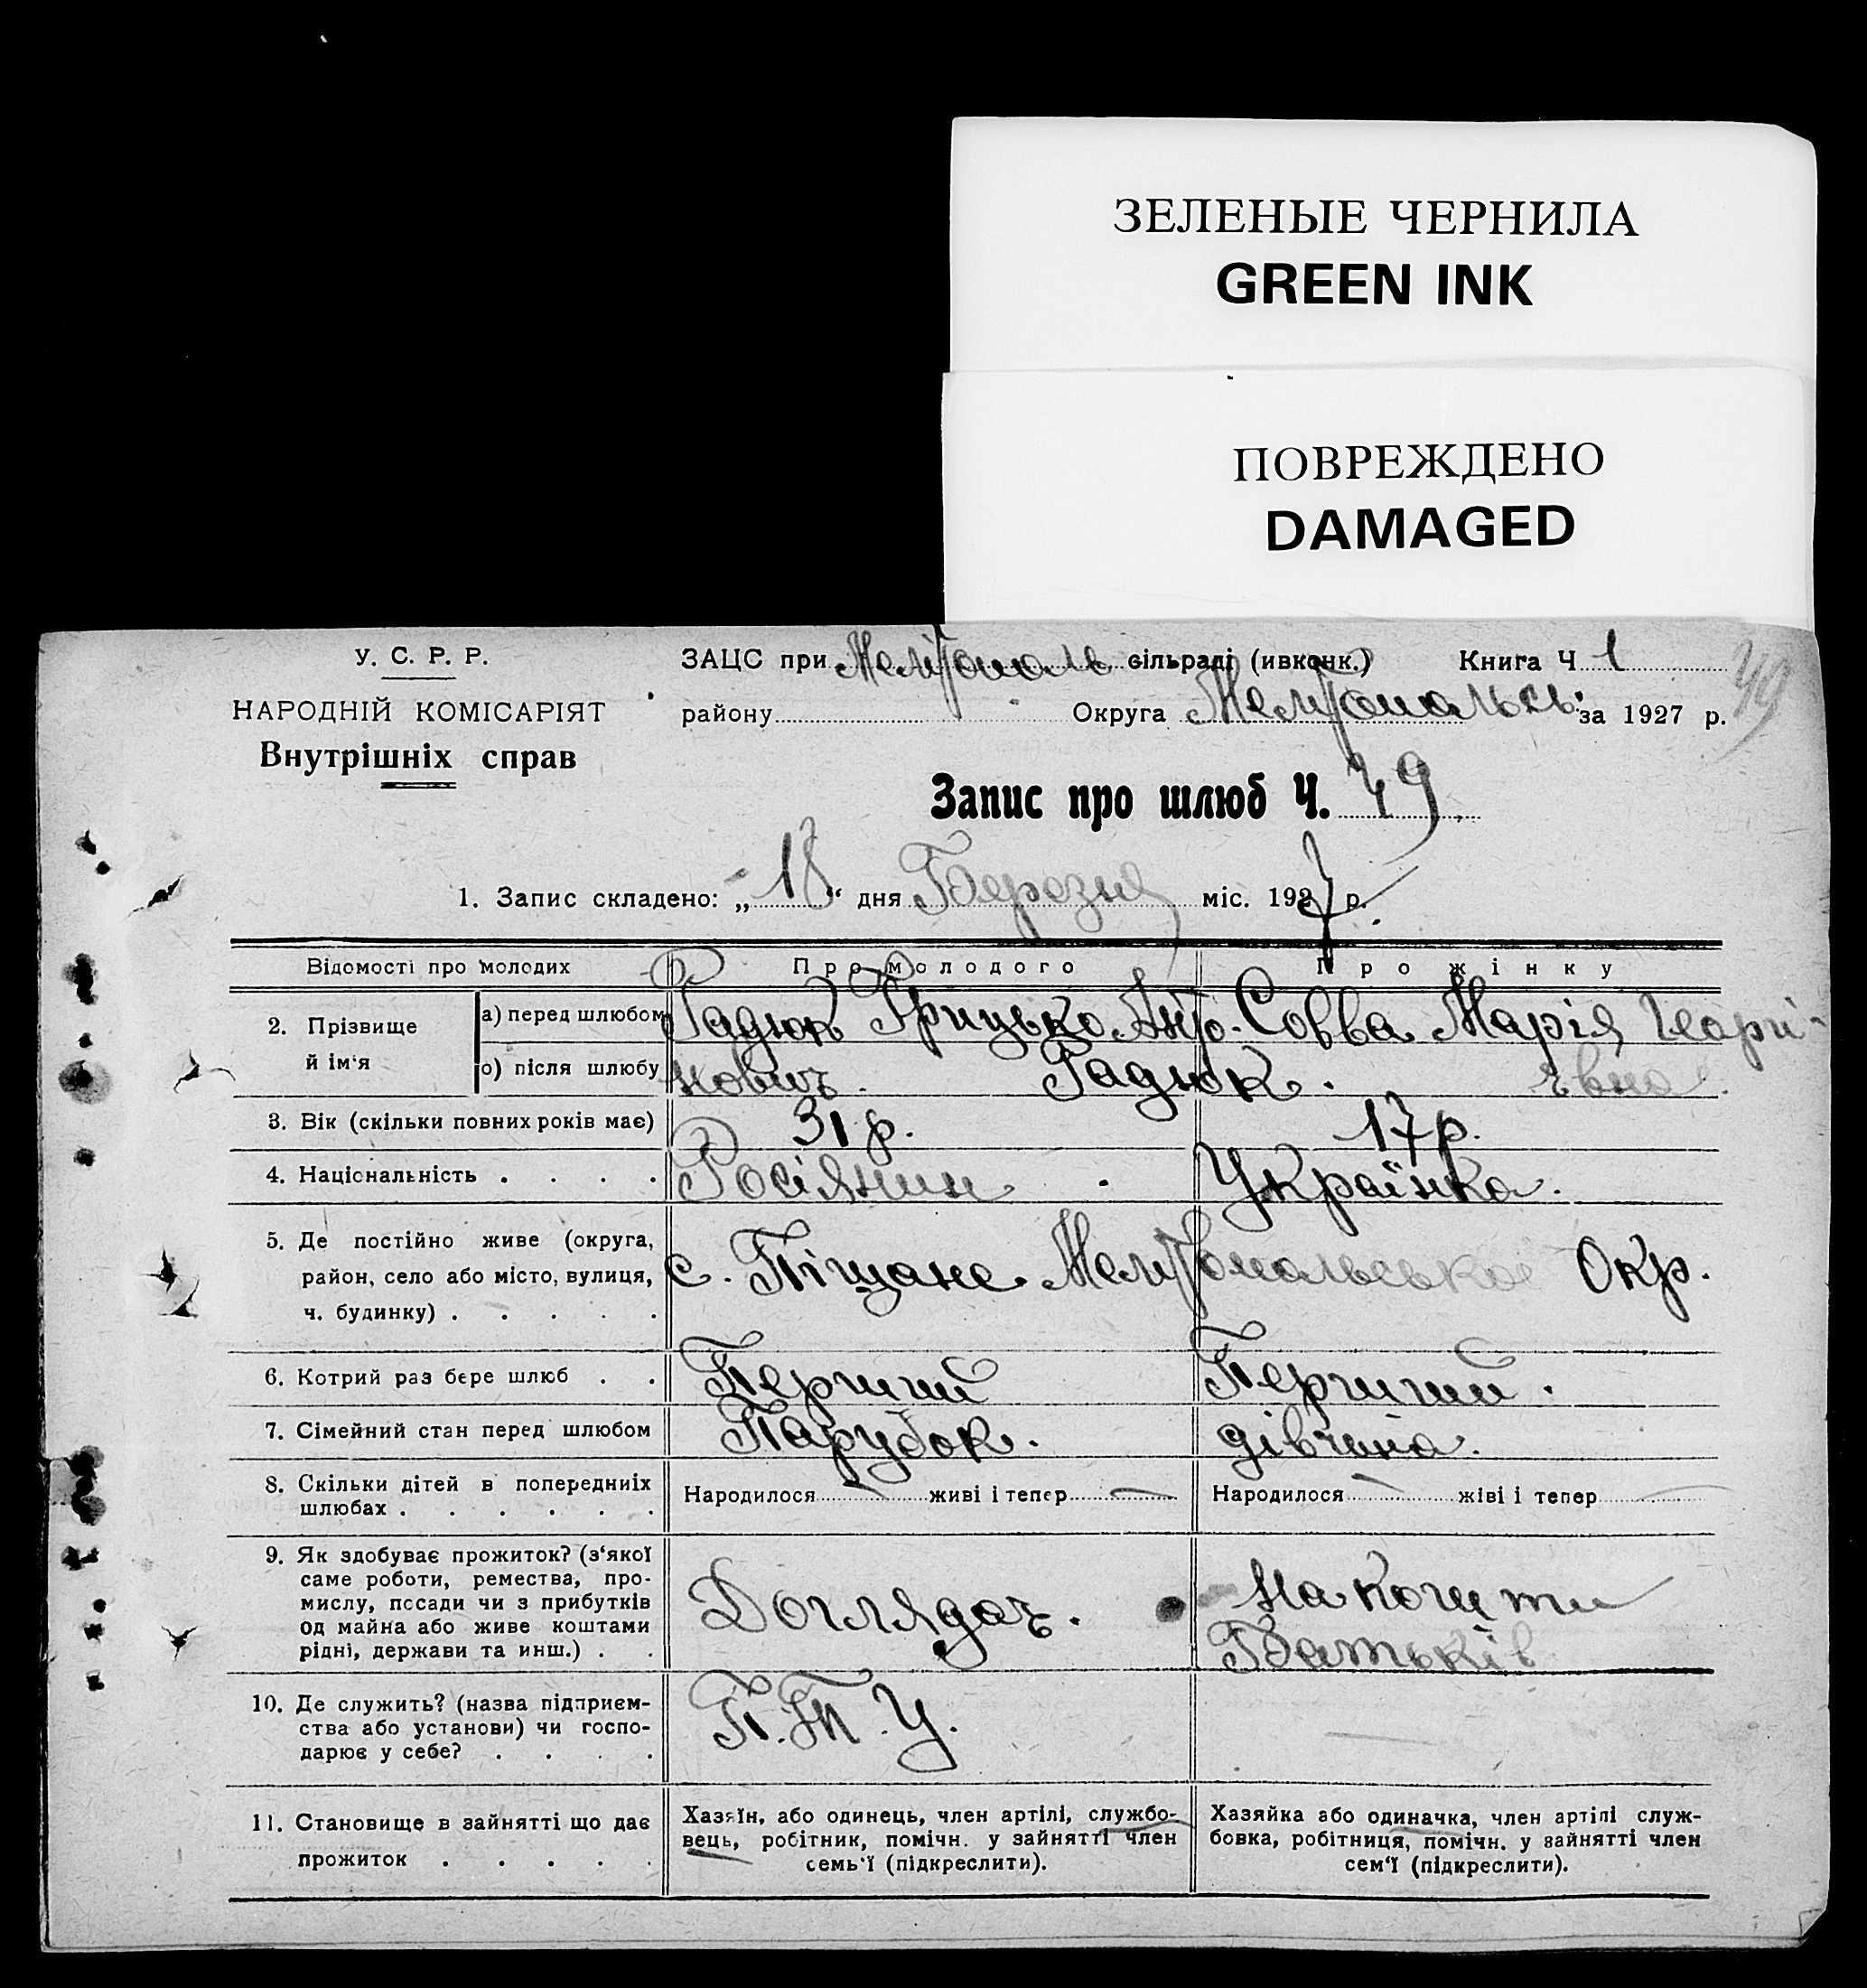 ЗЕЛЕНЫЕ ЧЕРНИЛА
GREEN INK
ПОВРЕЖДЕНО
DAMAGED
У. С. Р. Р.
НАРОДНІЙ КОМІСАРІЯТ
Внутрішніх справ
ЗАЦС при Мелітополь сільраді (ивконк.) Книга Ч 1
49
району Округа Мелітопольсь: за 1927 р.
Запис про шлюб Ч. 49
1. Запис складено: „ 18 “ дня Березня міс. 1927 р.
Відомості про молодих Про молодого Про жінку
2. Прізвище й ім'я
а) перед шлюбом Гадюк Грицько Анто- Совва Марія Георгі-
о) після шлюбу новичъ. Гадюк. ївна.
3. Вік (скільки повних років має) 31 р. 17 р.
4. Національність . . . . Росіянин . Українка.
5. Де постійно живе (округа,
район, село або місто, вулиця, с. Піщане Мелітопольської Окр.
ч. будинку) . . . . .
6. Котрий раз бере шлюб . . Перший Перший.
7. Сімейний стан перед шлюбом Парубок. дівчина.
8. Скільки дітей в попередниіх
шлюбах . . . . . . Народилося — живі і тепер — Народилося — жіві і тепер —
9. Як здобуває прожиток? (з'якої
саме роботи, ремества, про-
мислу, посади чи з прибутків Доглядачъ. На кошти
од майна або живе коштами Батьків
рідні, держави та инш.) . .
10. Де служить? (назва підприєм-
ства або установи) чи госпо- П.Т.У.
дарює у себе? . . . .
11. Становище в зайнятті що дає
прожиток . . . . .
Хазяїн, або одинець, член артілі, службо-
вець, робітник, помічн. у зайнятті член
семь'ї (підкреслити).
Хазяйка або одиначка, член артілі служ-
бовка, робітниця, помічн. у зайнятті член
сем'ї (підкреслити).